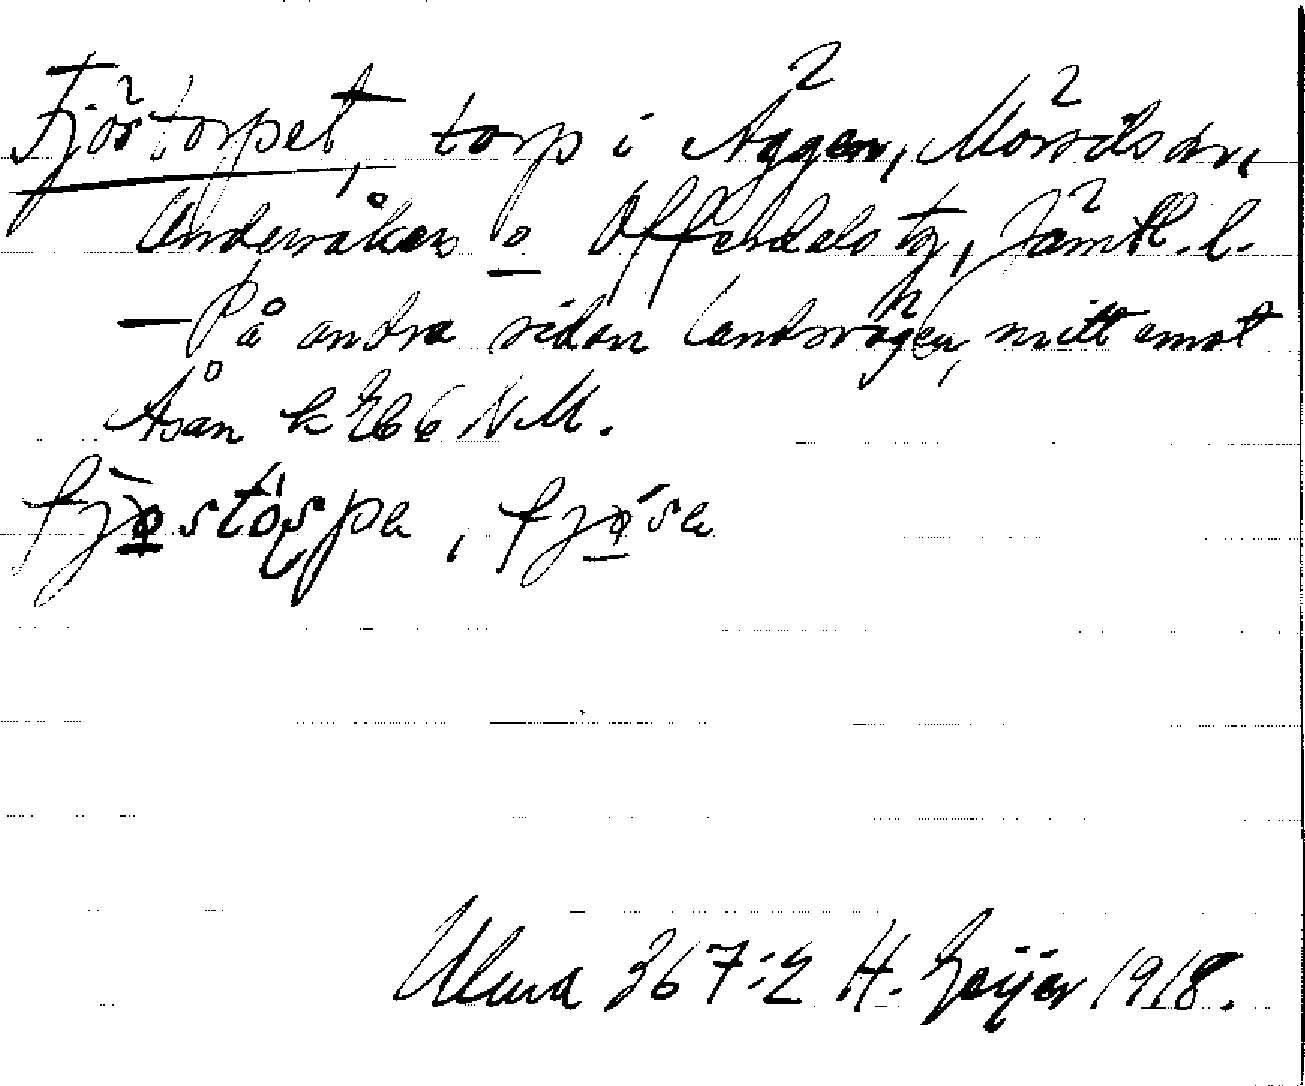 Fjöstorpet, torp i Äggen, Mörsils sn,
Undersåkers o Offerdals tg, Jämtl. l.
— På andra sidan landsvägen, mitt emot
Åsan k 266 NM.
fjøstöspa, fjøsa
Ulma 367:2 H. Geijer 1918.